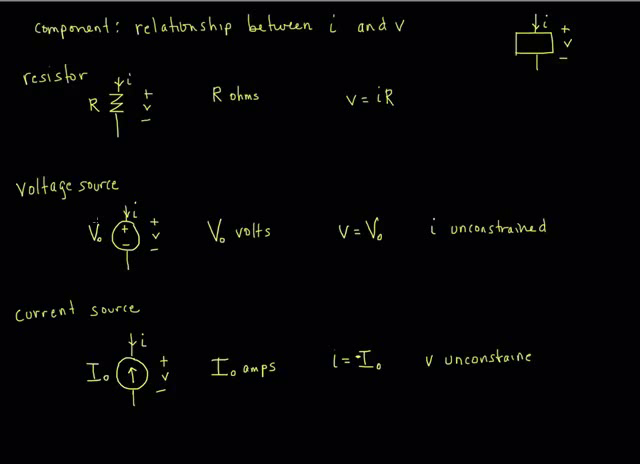 component: relationship between i and v
i
+
v
−
resistor
i
R + v −
R ohms
v = iR
Voltage source
i
V₀ + − + v −
V₀ volts
v = V₀
i unconstrained
Current source
i
I₀ + v −
I₀ amps
i = -I₀
v unconstaine